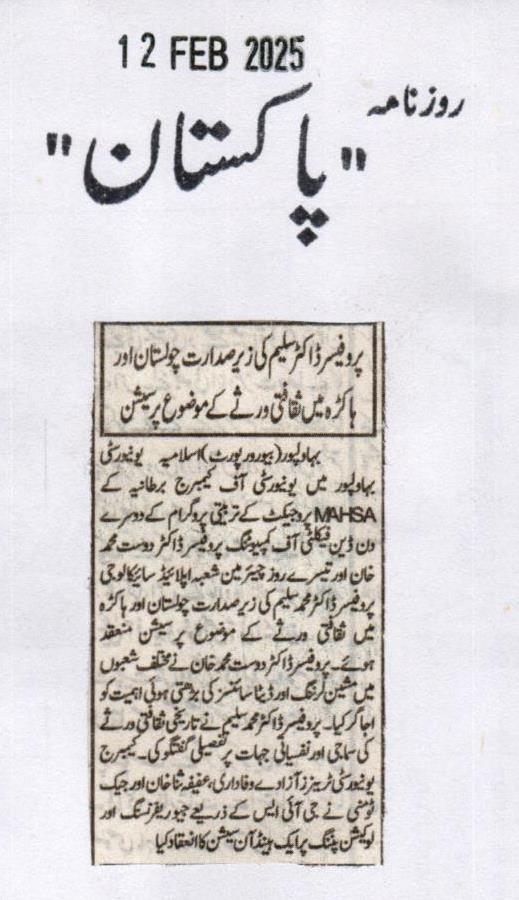 12 FEB 2025
روزنامہ
"پاکستان"
پروفیسر ڈاکٹر سلیم کی زیر صدارت چولستان اور
ہاکڑہ میں ثقافتی ورثے کے موضوع پر سیشن
بہاولپور (بیورورپورٹ) اسلامیہ یونیورسٹی
بہاولپور میں یونیورسٹی آف کیمبرج برطانیہ کے
MAHSA پروجیکٹ کے تربیتی پروگرام کے دوسرے
دن ڈین فیکلٹی آف کمپیوٹنگ پروفیسر ڈاکٹر دوست محمد
خان اور تیسرے روز چیئرمین شعبہ اپلائیڈ سائیکالوجی
پروفیسر ڈاکٹر محمد سلیم کی زیر صدارت چولستان اور ہاکڑہ
میں ثقافتی ورثے کے موضوع پر سیشن منعقد
ہوئے۔ پروفیسر ڈاکٹر دوست محمد خان نے مختلف شعبوں
میں مشین لرننگ اور ڈیٹا سائنسز کی بڑھتی ہوئی اہمیت کو
اجاگر کیا۔ پروفیسر ڈاکٹر محمد سلیم نے تاریخی ثقافتی ورثے
کی سماجی اور نفسیاتی جہات پر تفصیلی گفتگو کی۔ کیمبرج
یونیورسٹی ٹرینرز آزادے وفاداری، عفیفہ ثنا خان اور جیک
ٹومنی نے جی آئی ایس کے ذریعے جیوریفرنسنگ اور
لوکیشن پننگ پر ایک ہینڈ آن سیشن کا انعقاد کیا